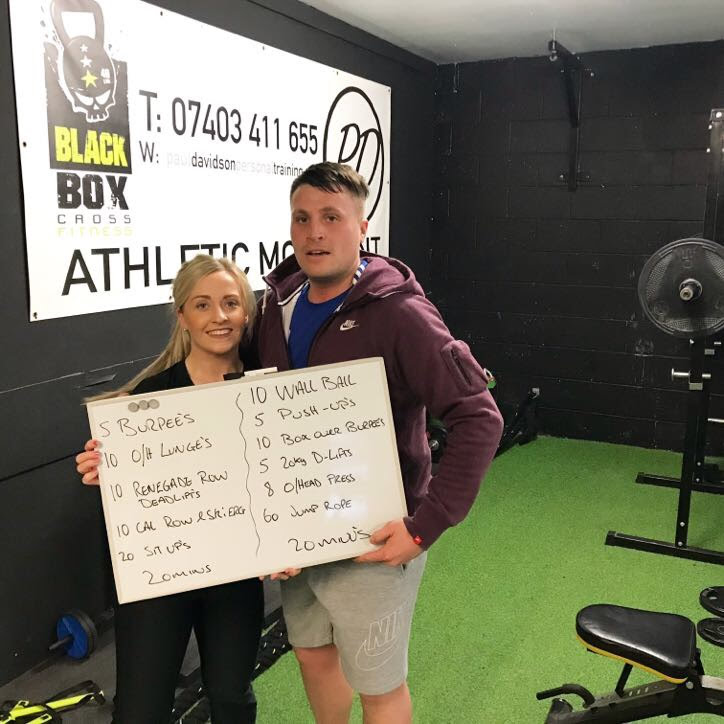 BLACK
BOX
CROSS
FITNESS
T: 07403 411 655
W: pauldavidsonpersonaltraining
PD
ATHLETIC
5 BURPEE'S
10 O/H LUNGE'S
10 RENEGADE ROW
DEADLIFT'S
10 CAL ROW & SKIERG
20 SIT UP'S
20 MINS
10 WALL BALL
5 PUSH-UP'S
10 BOX OVER BURPEES
5 20Kg D-LIFTS
8 O/HEAD PRESS
60 JUMP ROPE
20 MINU'S
NIKE
NIKE